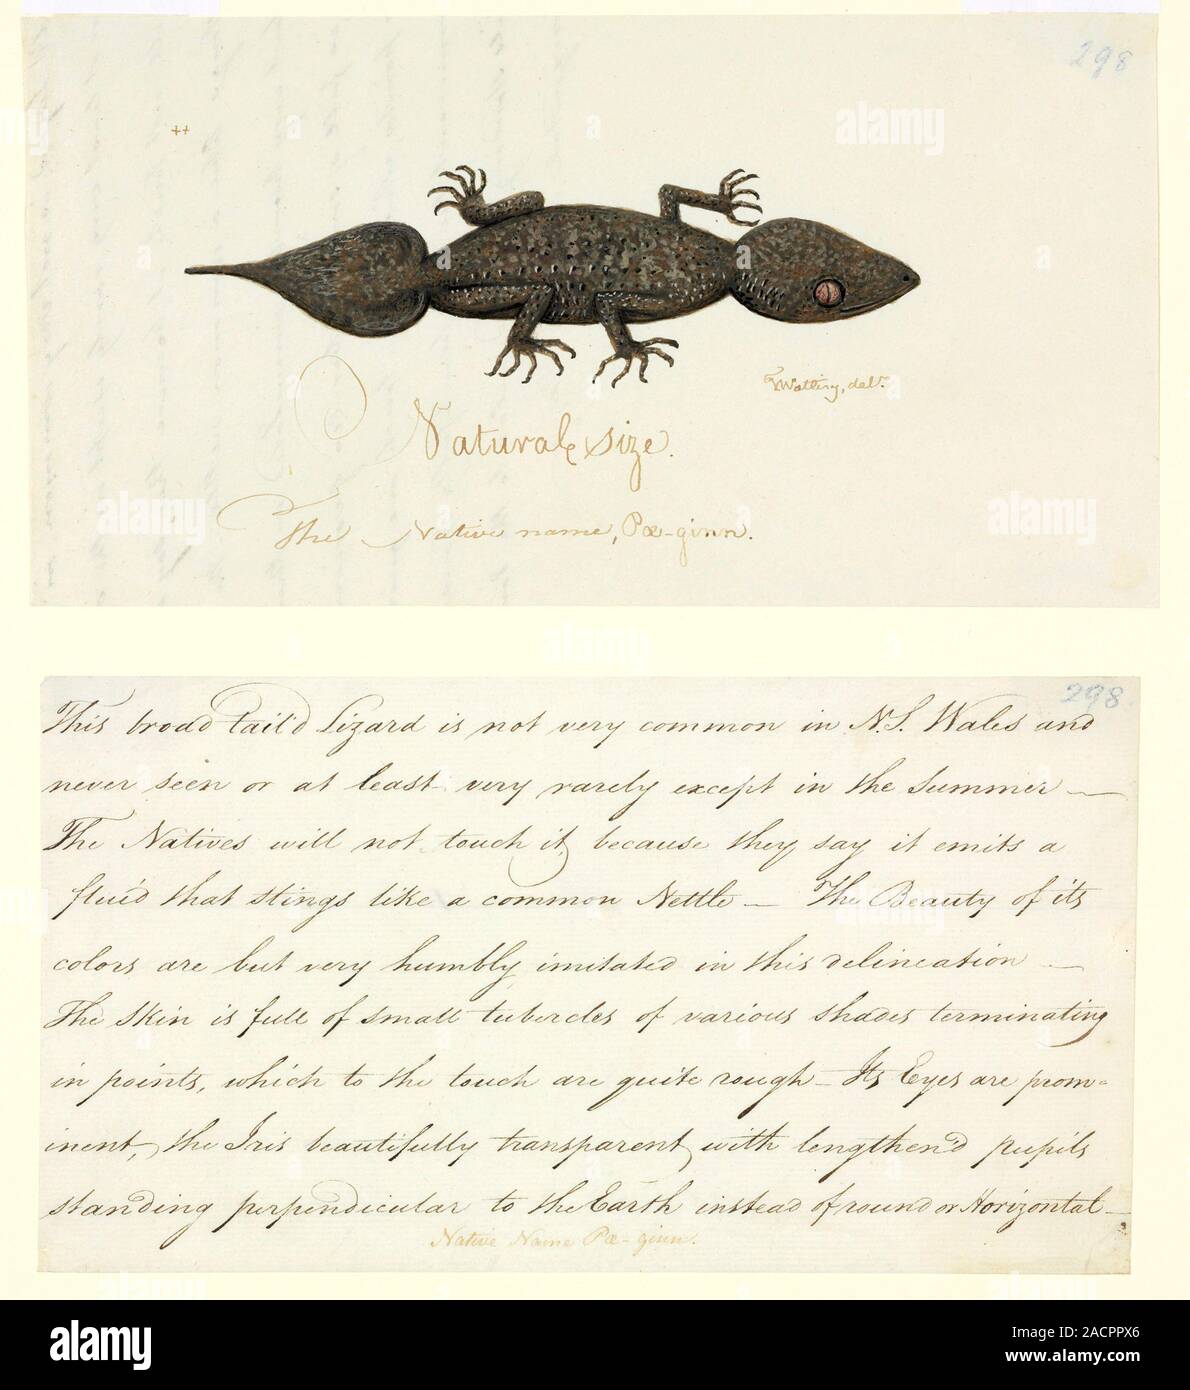 298
++
T Watling, del.r
Natural size.
The Native name, Pœ-ginn.
298
This broad tail'd Lizard is not very common in N.S. Wales and
never seen or at least very rarely except in the Summer —
The Natives will not touch it, because they say it emits a
fluid that stings like a common Nettle — The Beauty of its
colors are but very humbly imitated in this delineation —
The skin is full of small tubercles of various shades terminating
in points, which to the touch are quite rough — Its Eyes are prom=
inent, the Iris beautifully transparent, with lengthen'd pupils
standing perpendicular to the Earth instead of round or Horizontal —
Native Name Pœ-ginn.
alamy
Image ID: 2ACPPX6
www.alamy.com